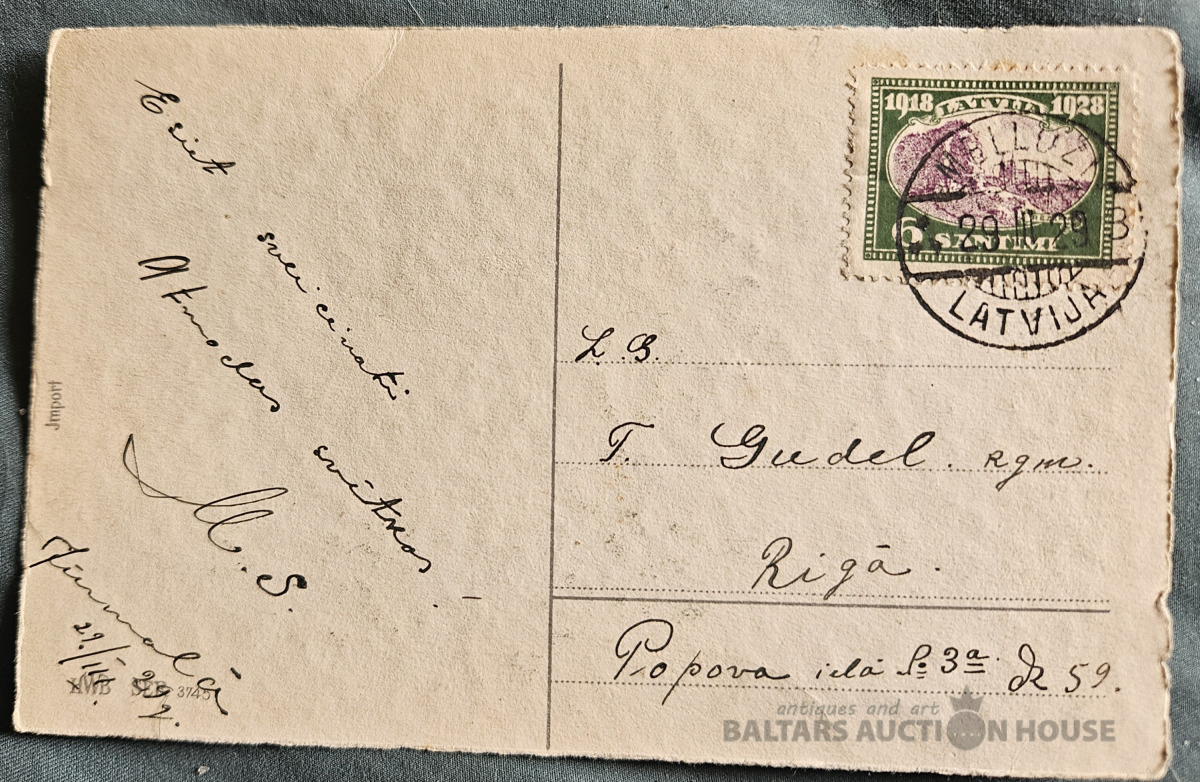 Esiet
sveicināti
Atmodas svētkos.
M. S.
Jūrmalā
29./III. 29 g.
Jmport
HWB SER 3745
1918 LATVIJA 1928
6 SANTIMI
29 III 29 B
LATVIJA
L. G.
T. Gudel. kgm.
Rīgā.
Popova ielā № 3ª dz 59.
antiques and art
BALTARS AUCTION HOUSE